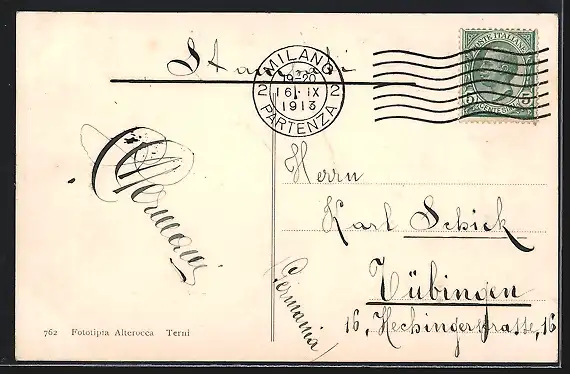 Stampati
MILANO
19-20
2 16. IX 2
1913
PARTENZA
POSTE ITALIANE
5 CENTESIMI 5
Herrn
Karl Schick
Tübingen
16, Hechingerstrasse, 16
(Germania)
762 Fototipia Alterocca Terni